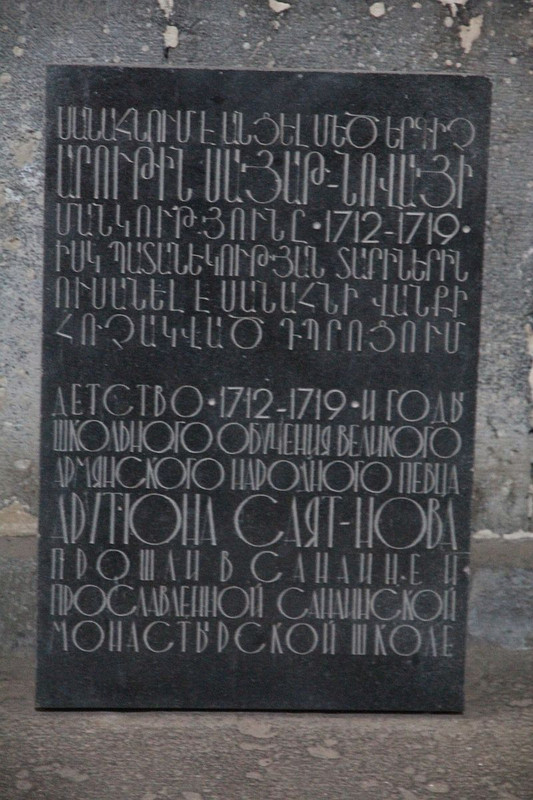 ՍԱՆԱՀՆՈՒՄ Է ԱՆՑԵԼ ՄԵԾ ԵՐԳԻՉ
ԱՐՈՒԹԻՆ ՍԱՅԱԹ-ՆՈՎԱՅԻ
ՄԱՆԿՈՒԹՅՈՒՆԸ • 1712-1719 •
ԻՍԿ ՊԱՏԱՆԵԿՈՒԹՅԱՆ ՏԱՐԻՆԵՐԻՆ
ՈՒՍԱՆԵԼ Է ՍԱՆԱՀՆԻ ՎԱՆՔԻ
ՀՌՉԱԿՎԱԾ ԴՊՐՈՑՈՒՄ
ДЕТСТВО • 1712-1719 • И ГОДЫ
ШКОЛЬНОГО ОБУЧЕНИЯ ВЕЛИКОГО
АРМЯНСКОГО НАРОДНОГО ПЕВЦА
АРУТЮНА САЯТ-НОВА
ПРОШЛИ В САНАИНЕ И
ПРОСЛАВЛЕННОЙ САНАИНСКОЙ
МОНАСТЫРСКОЙ ШКОЛЕ